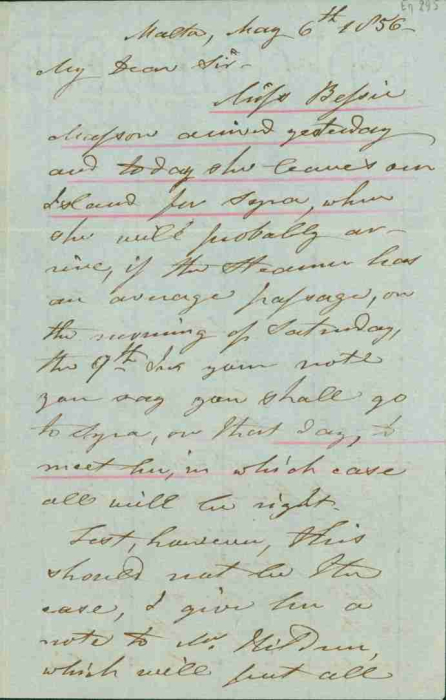 En 295
Malta, May 6th 1856
My Dear Sir
Miss Bessie
Masson arrived yesterday
and today she leaves our
Island for Syra, where
she will probably ar-
rive, if the Steamer has
an average passage, on
the morning of Saturday,
the 9th. In your note
you say you shall go
to Syra, on that day, to
meet her, in which case
all will be right.
Lest, however, this
should not be the
case, I give her a
note to Mr. Hildner,
which will put all